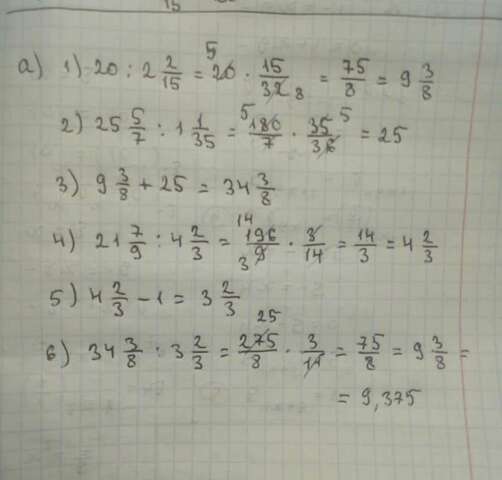 15
а) 1) 20 : 2 2/15 = 20 5 · 15/32 8 = 75/8 = 9 3/8
2) 25 5/7 : 1 1/35 = 180 5/7 · 35 5/36 = 25
3) 9 3/8 + 25 = 34 3/8
4) 21 7/9 : 4 2/3 = 196 14/9 3 · 3/14 = 14/3 = 4 2/3
5) 4 2/3 - 1 = 3 2/3
6) 34 3/8 : 3 2/3 = 275 25/8 · 3/11 = 75/8 = 9 3/8 =
= 9,375